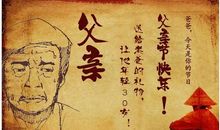 爸爸,
今天是你的节日
父亲节快乐!
送给老爸的礼物,
让他年轻30岁!
父亲